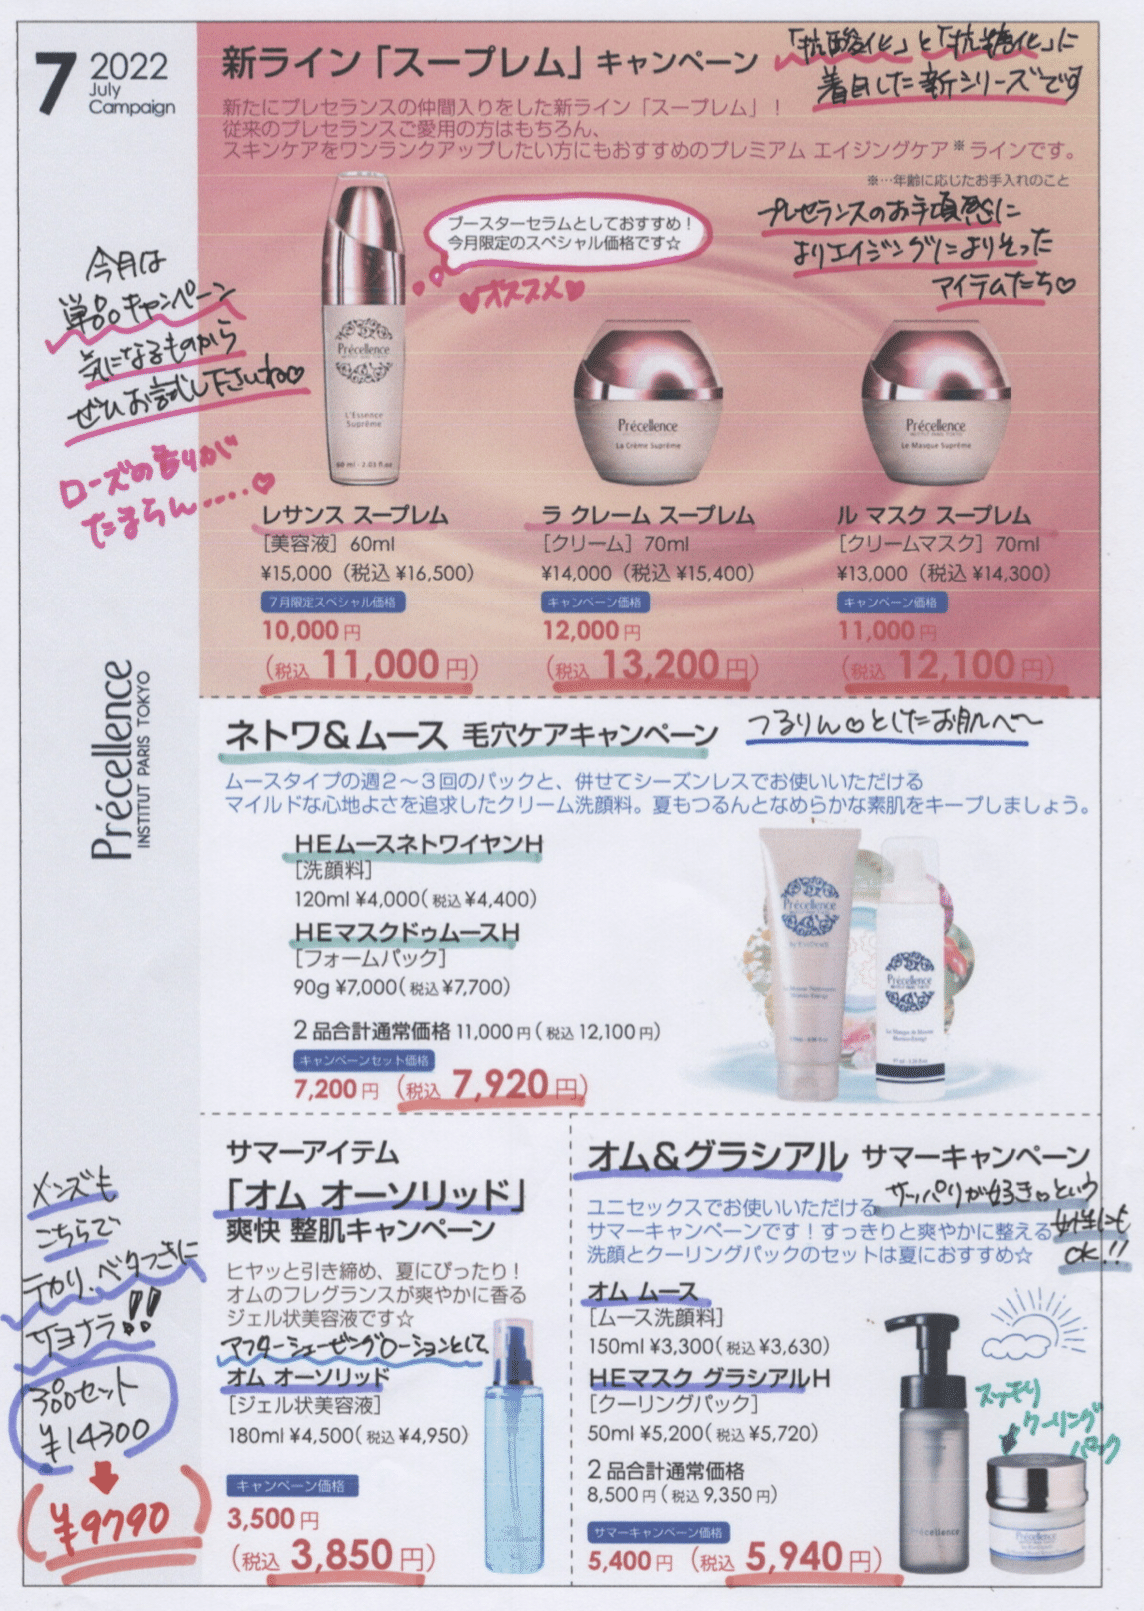 7 2022
July
Campaign
新ライン「スープレム」キャンペーン
「抗酸化」と「抗糖化」に
着目した新シリーズです
新たにプレセランスの仲間入りをした新ライン「スープレム」！
従来のプレセランスご愛用の方はもちろん、
スキンケアをワンランクアップしたい方にもおすすめのプレミアム エイジングケア※ラインです。
※…年齢に応じたお手入れのこと
ブースターセラムとしておすすめ！
今月限定のスペシャル価格です☆
♥オススメ♥
プレセランスのお手頃感に
よりエイジングによりそった
アイテムたち♡
今月は
単品キャンペーン
気になるものから
ぜひお試し下さいね♡
ローズの香りが
たまらん.....♡
Précellence
L'Essence
Suprême
60 ml - 2.03 fl oz
Précellence
INSTITUT PARIS TOKYO
La Crème Suprême
Précellence
INSTITUT PARIS TOKYO
Le Masque Suprême
レサンス スープレム
［美容液］60ml
¥15,000（税込 ¥16,500）
7月限定スペシャル価格
10,000円
（税込 11,000円）
ラ クレーム スープレム
［クリーム］70ml
¥14,000（税込 ¥15,400）
キャンペーン価格
12,000円
（税込 13,200円）
ル マスク スープレム
［クリームマスク］70ml
¥13,000（税込 ¥14,300）
キャンペーン価格
11,000円
（税込 12,100円）
Précellence
INSTITUT PARIS TOKYO
ネトワ&ムース 毛穴ケアキャンペーン
つるりん♡としたお肌へ〜
ムースタイプの週2〜3回のパックと、併せてシーズンレスでお使いいただける
マイルドな心地よさを追求したクリーム洗顔料。夏もつるんとなめらかな素肌をキープしましょう。
HEムースネトワイヤンH
［洗顔料］
120ml ¥4,000（税込 ¥4,400）
HEマスクドゥムースH
［フォームパック］
90g ¥7,000（税込 ¥7,700）
2品合計通常価格 11,000円（税込 12,100円）
キャンペーンセット価格
7,200円（税込 7,920円）
Précellence
Précellence
サマーアイテム
「オム オーソリッド」
爽快 整肌キャンペーン
ヒヤッと引き締め、夏にぴったり！
オムのフレグランスが爽やかに香る
ジェル状美容液です☆
アフターシェービングローションとして
オム オーソリッド
［ジェル状美容液］
180ml ¥4,500（税込 ¥4,950）
キャンペーン価格
3,500円
（税込 3,850円）
メンズも
こちらで
テカり、ベタつきに
サヨナラ!!
3品セット
¥14300
（¥9790）
オム&グラシアル サマーキャンペーン
サッパリが好き♡という
女性にも
OK!!
ユニセックスでお使いいただける
サマーキャンペーンです！すっきりと爽やかに整える
洗顔とクーリングパックのセットは夏におすすめ☆
オム ムース
［ムース洗顔料］
150ml ¥3,300（税込 ¥3,630）
HEマスク グラシアルH
［クーリングパック］
50ml ¥5,200（税込 ¥5,720）
2品合計通常価格
8,500円（税込 9,350円）
サマーキャンペーン価格
5,400円（税込 5,940円）
スッキリ
クーリング
パック
Précellence
Précellence